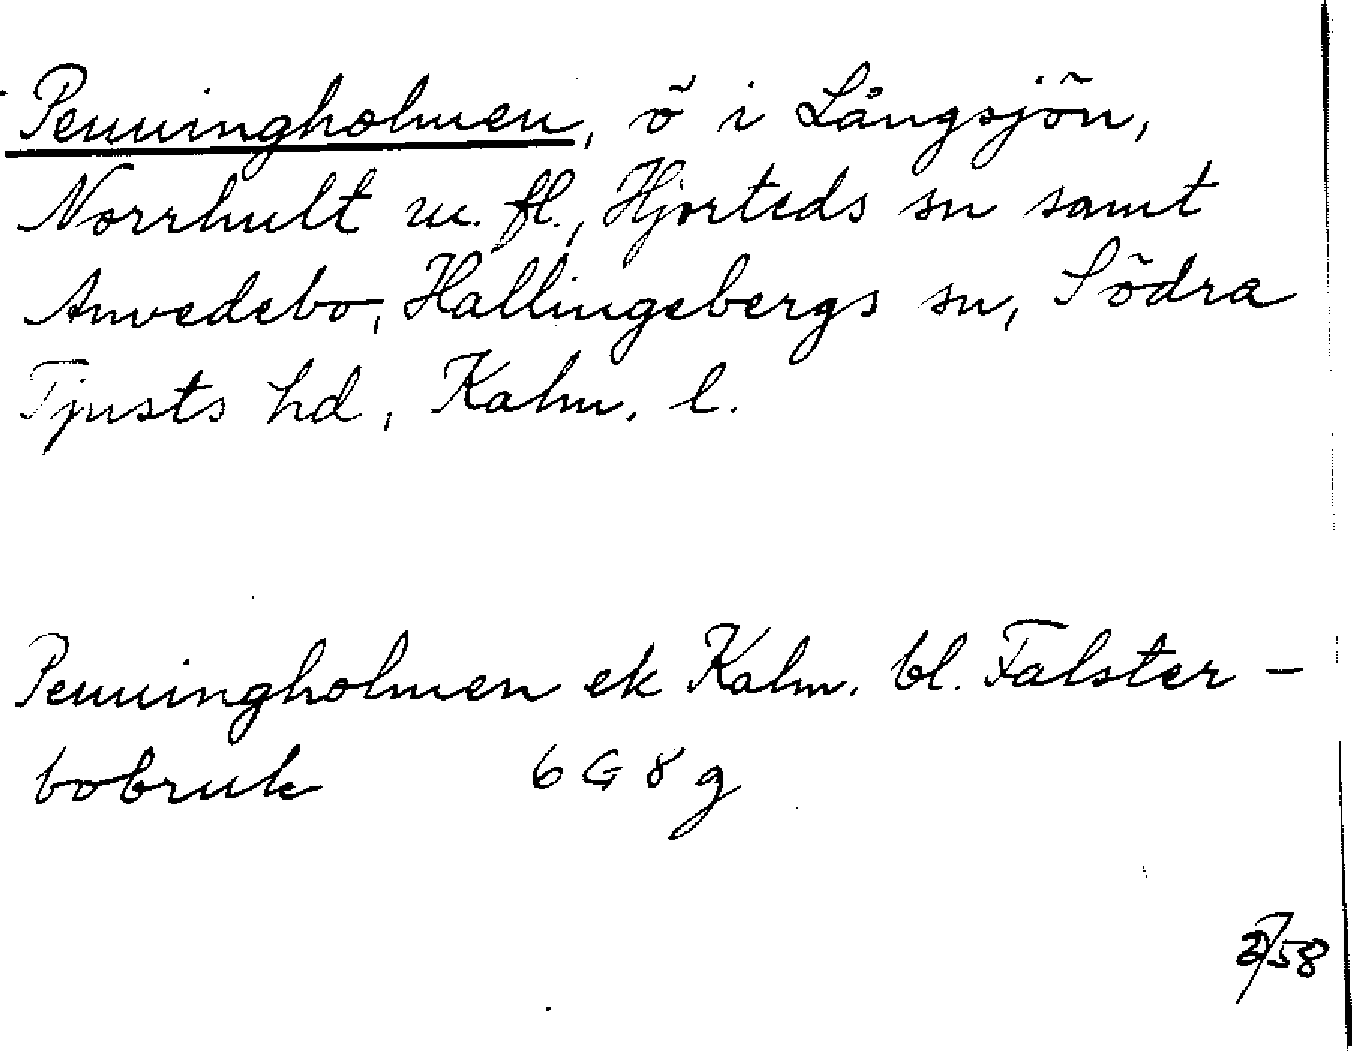 Penningholmen, ö i Långsjön,
Norrhult m. fl., Hjorteds sn samt
Anvedebo, Hallingebergs sn, Södra
Tjusts hd, Kalm. l.
Penningholmen ek Kalm. bl. Falster-
bobruk 6 G 8 g
58